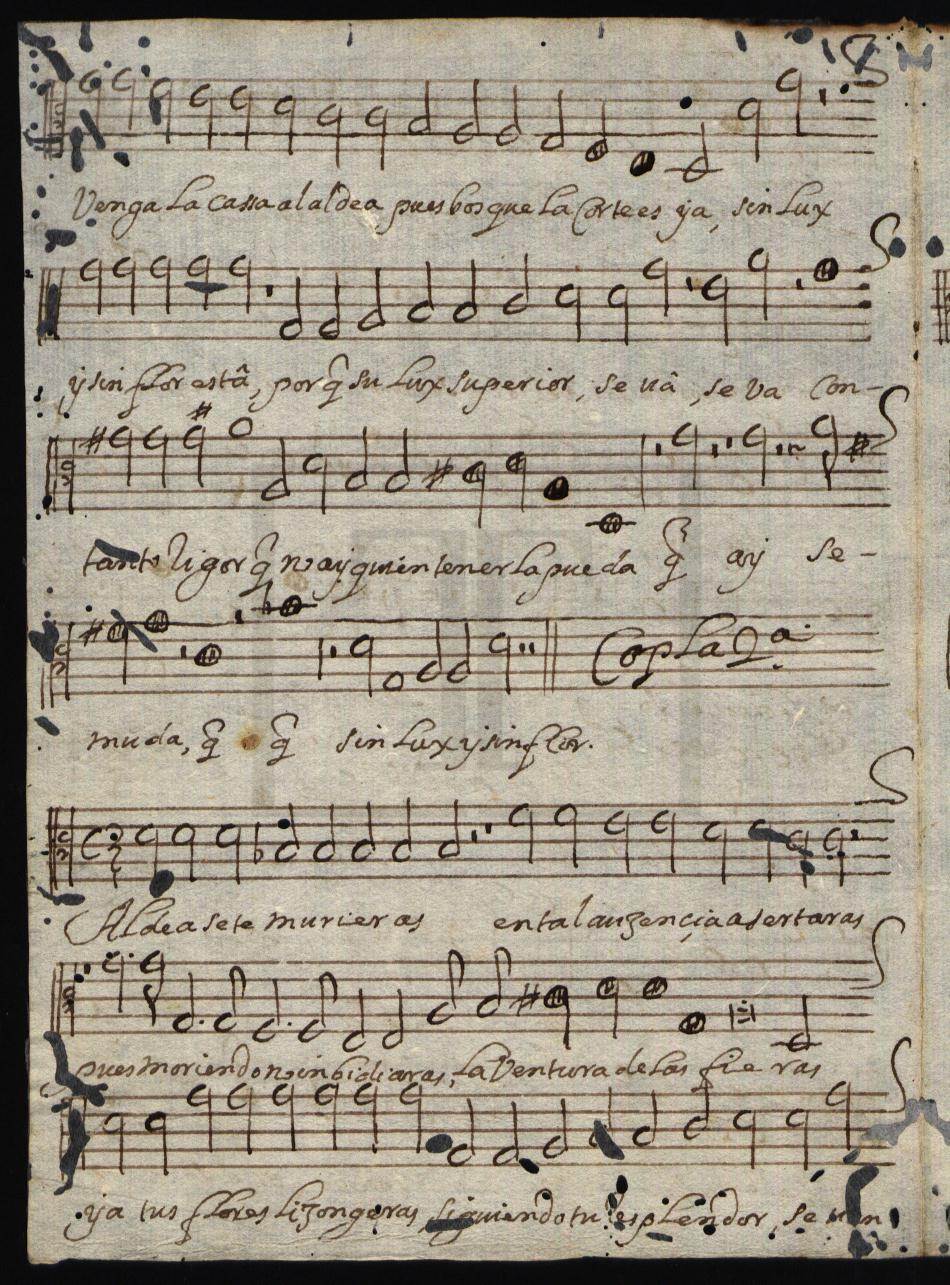 Venga la cassa al aldea pues bosque la Corte es ya, sin lux
y sin flor estâ, porq̃ su lux superior, se uâ, se va Con-
tanto Rigor q̃ no ay quien tener la pueda q̃ ay se-
muda, q̃ q̃ sin lux y sin flor.
Copla 2ª
Aldea sete murieras en tal auzençia asertaras
pues moriendo no inbidiaras, la Ventura de las fieras
ya tus flores lizongeras siguiendo tu esplendor, se